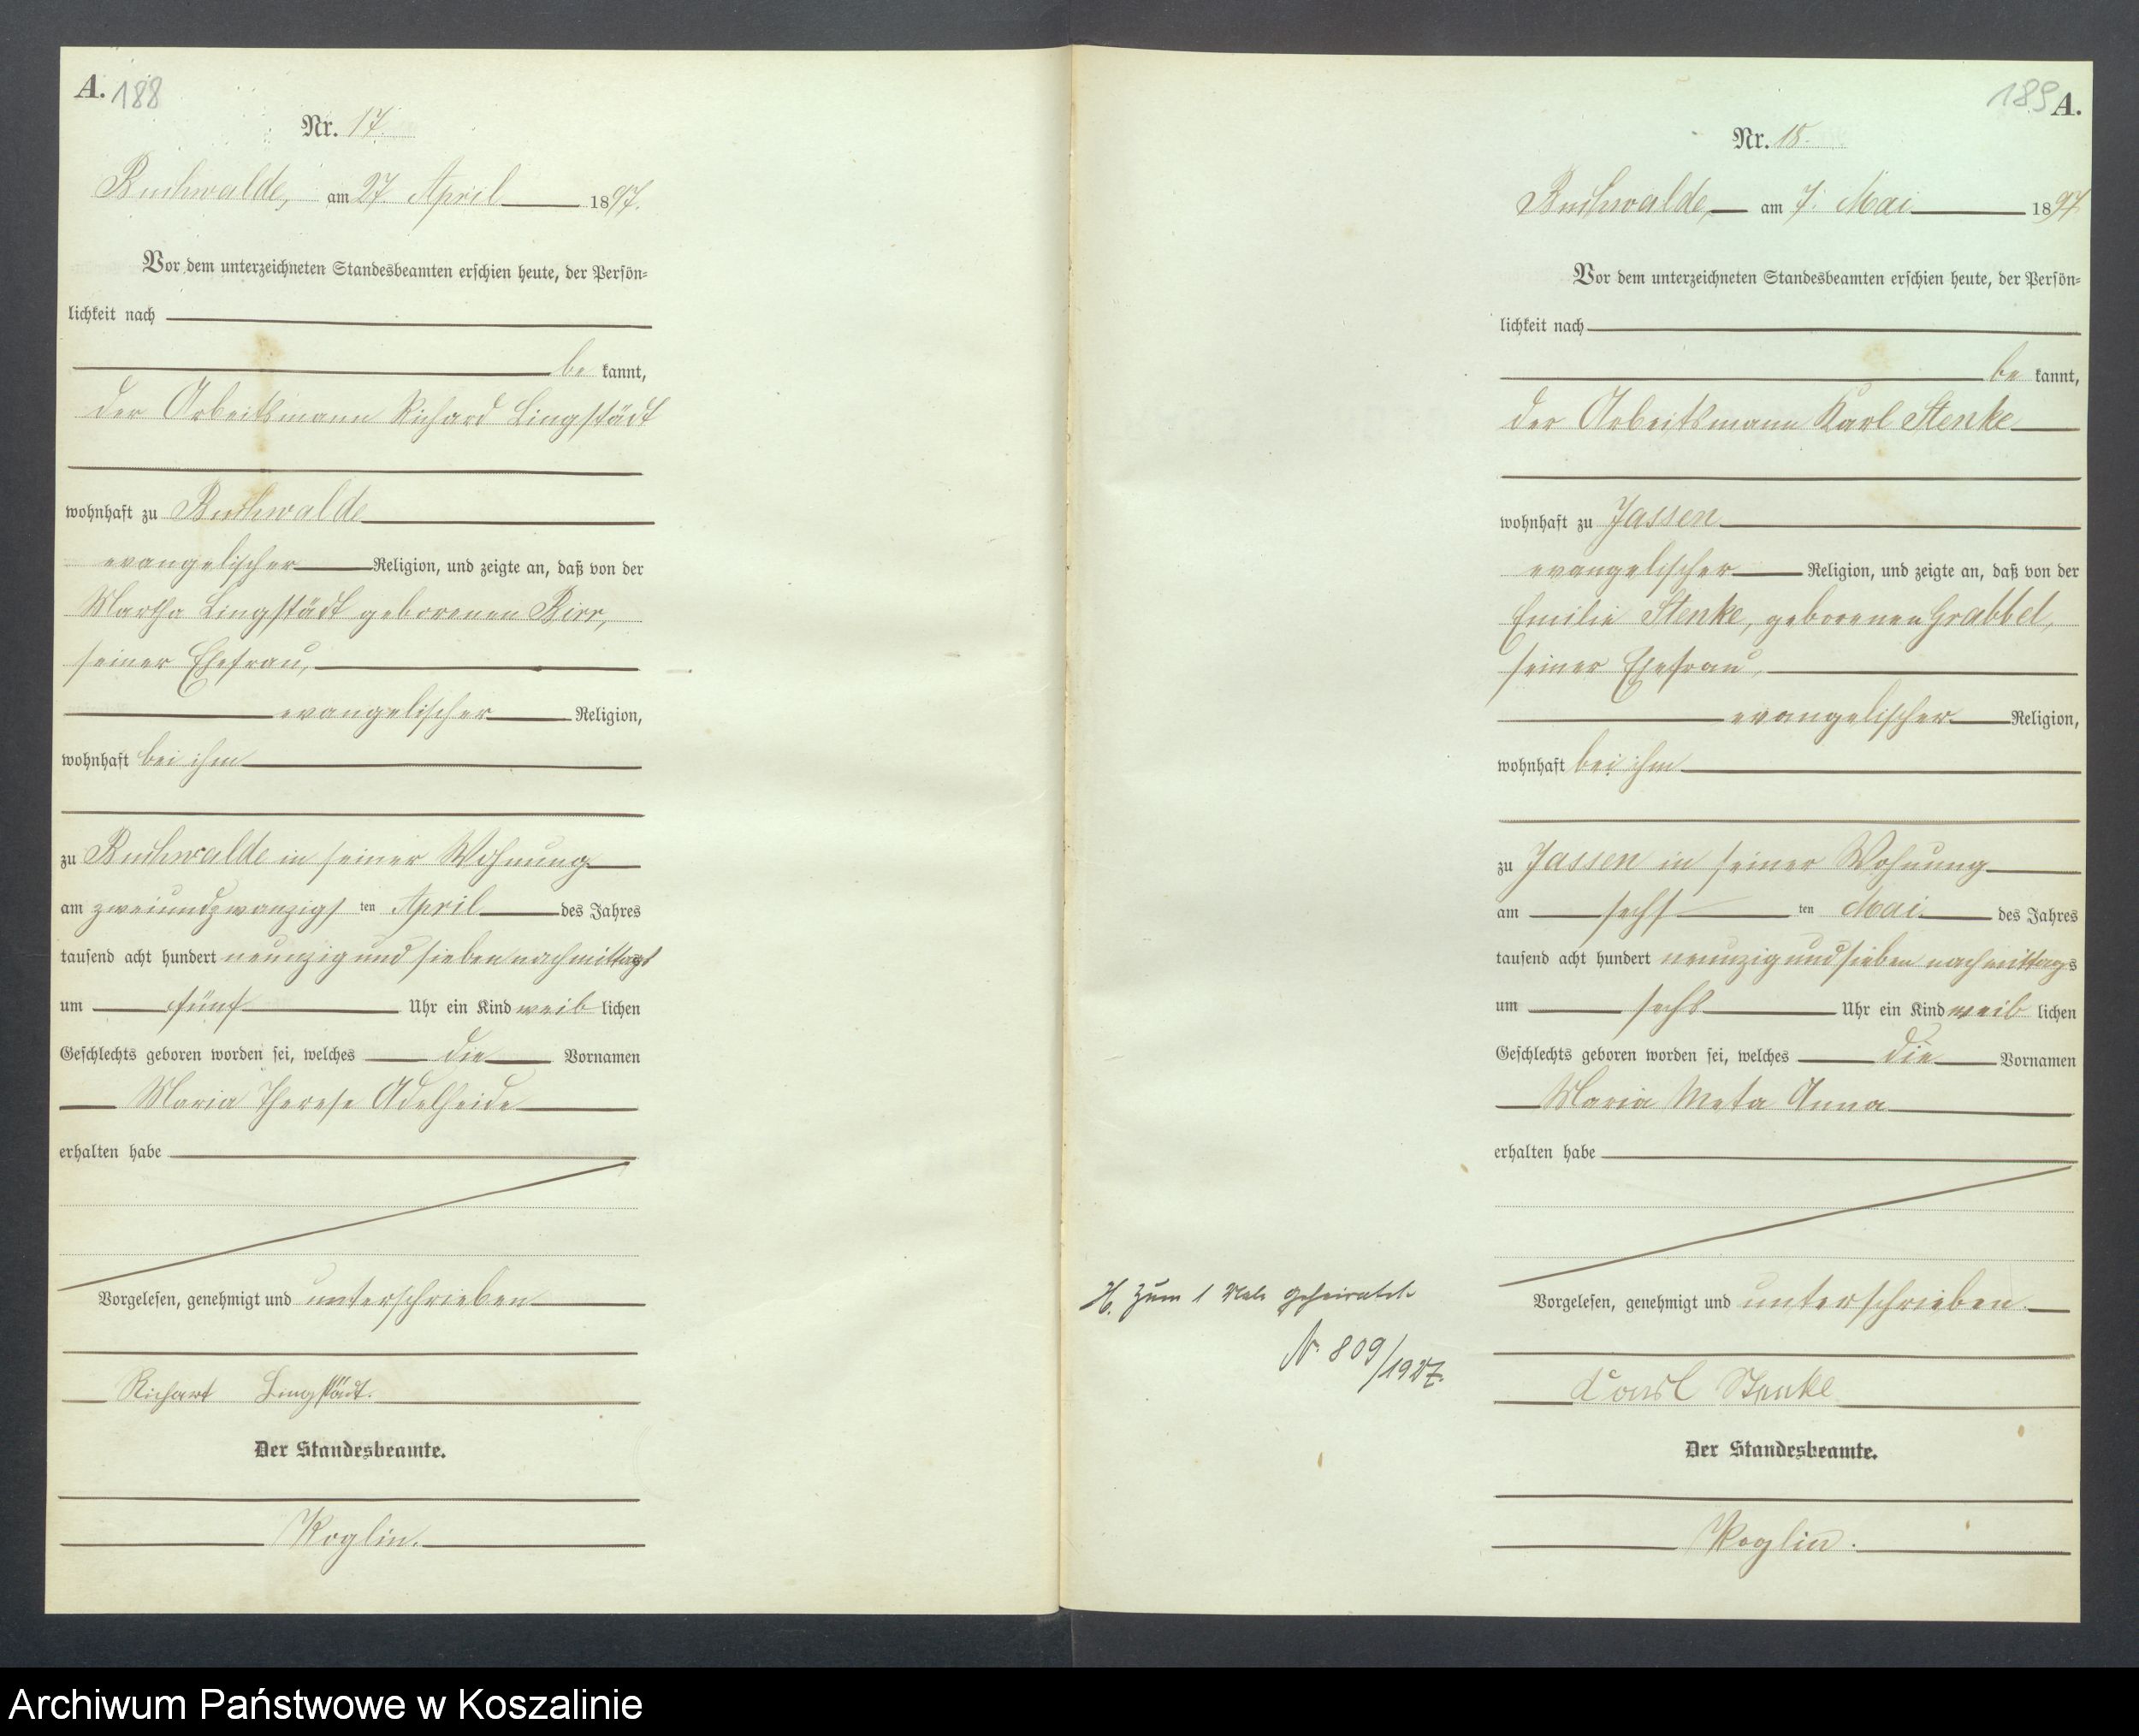 A. 188
Nr. 17.
Buchwalde, am 27. April 1897.
Vor dem unterzeichneten Standesbeamten erschien heute, der Persön=
lichkeit nach
be kannt,
der Arbeitsmann Richard Lingstädt
wohnhaft zu Buchwalde
evangelischer Religion, und zeigte an, daß von der
Martha Lingstädt geborenen Birr,
seiner Ehefrau,
evangelischer Religion,
wohnhaft bei ihm
zu Buchwalde in seiner Wohnung
am zweiundzwanzigs ten April des Jahres
tausend acht hundert neunzig und sieben nachmittags
um fünf Uhr ein Kind weib lichen
Geschlechts geboren worden sei, welches die Vornamen
Maria Therese Adelheide
erhalten habe
Vorgelesen, genehmigt und unterschrieben
Richart Lingstädt.
Der Standesbeamte.
Koglin.
189 A.
Nr. 18.
Buchwalde, am 7. Mai 1897
Vor dem unterzeichneten Standesbeamten erschien heute, der Persön=
lichkeit nach
be kannt,
der Arbeitsmann Karl Stenke
wohnhaft zu Jassen
evangelischer Religion, und zeigte an, daß von der
Emilie Stenke, geborenen Grabbel,
seiner Ehefrau,
evangelischer Religion,
wohnhaft bei ihm
zu Jassen in seiner Wohnung
am sechs ten Mai des Jahres
tausend acht hundert neunzig und sieben nachmittags
um sechs Uhr ein Kind weib lichen
Geschlechts geboren worden sei, welches die Vornamen
Maria Meta Anna
erhalten habe
H. Zum 1 Male geheiratet
N. 809/1927.
Vorgelesen, genehmigt und unterschrieben.
Carl Stenke
Der Standesbeamte.
Koglin.
Archiwum Państwowe w Koszalinie